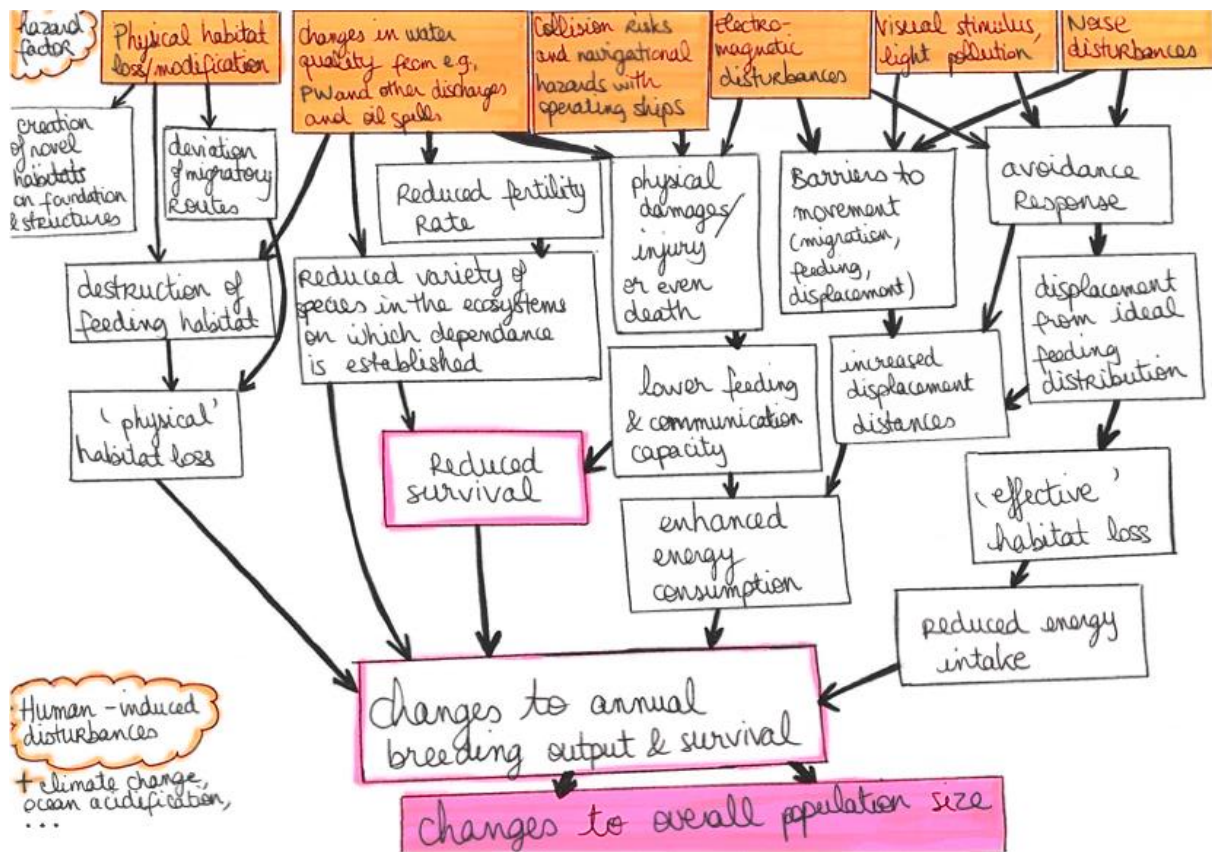 hazard
factor
Physical habitat
loss/modification
changes in water
quality from e.g.
PW and other discharges
and oil spills
Collision risks
and navigational
hazards with
operating ships
Electro-
magnetic
disturbances
Visual stimulus,
light pollution
Noise
disturbances
creation
of novel
habitats
on foundation
& structures
deviation
of migratory
Routes
Reduced fertility
Rate
physical
damages/
injury
or even
death
Barriers to
movement
(migration,
feeding,
displacement)
avoidance
Response
destruction of
feeding habitat
Reduced variety of
species in the ecosystems
on which dependance
is established
displacement
from ideal
feeding
distribution
lower feeding
& communication
capacity
increased
displacement
distances
'physical'
habitat loss
Reduced
survival
enhanced
energy
consumption
'effective'
habitat loss
Reduced energy
intake
changes to annual
breeding output & survival
changes to overall population size
Human-induced
disturbances
+ climate change,
ocean acidification,
...